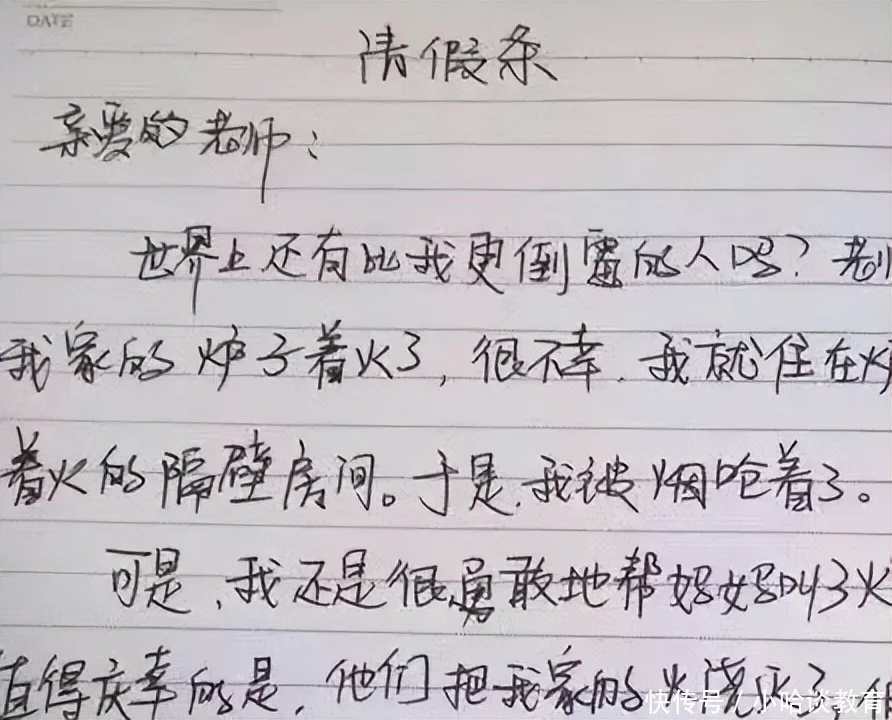 DATE
请假条
亲爱的老师:
世界上还有比我更倒霉的人吗?老
我家的炉子着火了,很不幸.我就住在
着火的隔壁房间。于是,我被烟呛着了。
可是,我还是很勇敢地帮妈妈叫了火
值得庆幸的是,他们把我家的火浇灭了,
快传号/小哈谈教育